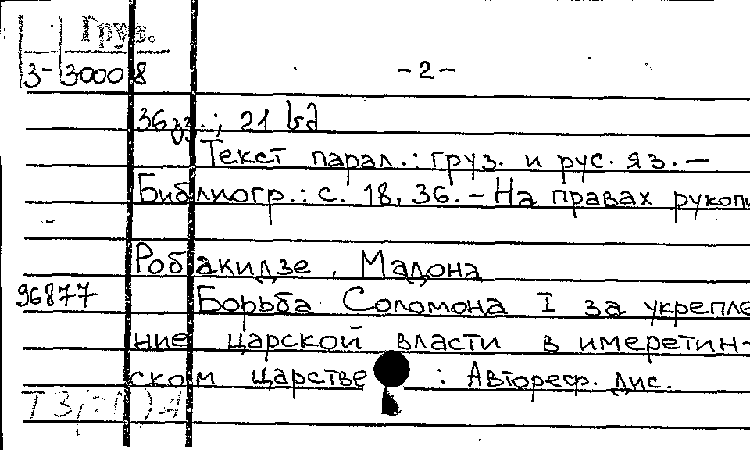 Груз.
3-30008
-2-
36 გვ.; 21 სმ
Текст парал.: груз. и рус. яз. –
Библиогр.: с. 18, 36. – На правах рукопи
Робакидзе, Мадона
96877 Борьба Соломона I за укрепле
ние царской власти в имеретин-
ском царстве : Автореф. дис.